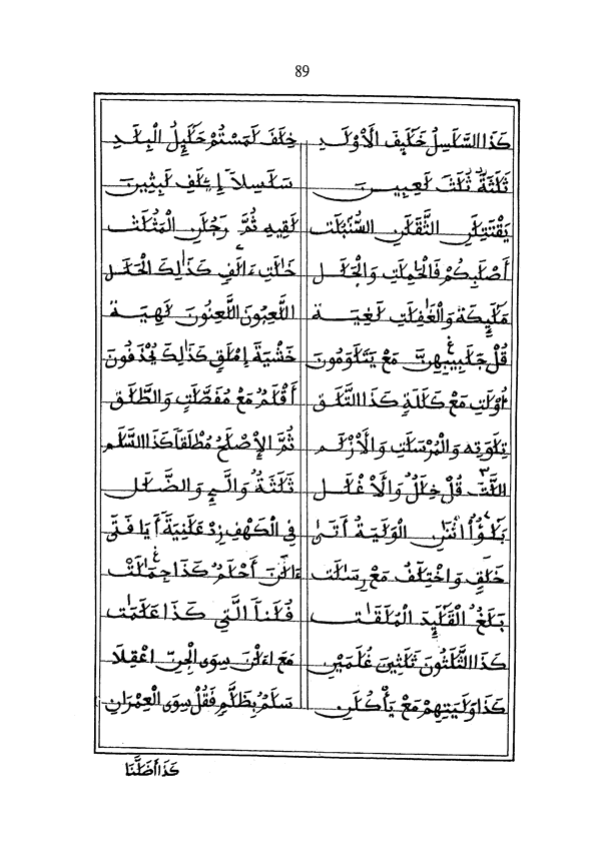 89
كَذَا السَّلَسِلُ خَلَيِفَ الَاوْلَـدِ خِلَفَ لَمَسْتُمْ حَلَيِلُ الْبِلَـدِ
ثَلَثَةٌ ثُلَثَ لَعِبِيـنَ سَلَسِلاَ إِۦلَفِ لَبِثِينَ
يَقْتَتِلَنِ الثَّقَلَنِ السُّنْبُلَتِ لَقِيهِ ثُمَّ رَجُلَنِ الْمَثُلَتْ
أَصْلَبِكُمْ فَالْحَمِلَتِ وَالْجَلَـلِ خَلَتِ ءَالَفٍ كَذَالِكَ الْحَلَـلِ
مَلَيِكَةٌ وَالْغَفِلَتِ لَغِيَـةْ اللَّعِبُونَ اللَّعِنُونَ لَهِيَـةْ
قُلْ جَلَبِيبِهِنَّ مَعْ يَتَلَوَمُونَ خَشْيَةَ إِمْلَقٍ كَذَالِكَ يُحْذَفُونَ
أُوْلَتِ مَعْ كَلَلَةٍ كَذَا التَّلَـقِ أَقْلَمٌ مَعْ مُفَصَّلَتٍ وَالطَّلَـقِ
تِلَوَتِهِ وَالْمُرْسَلَتِ وَالْأَزْلَـمِ ثُمَّ الْإِصْلَحُ مُطْلَقاً كَذَا السَّلَمِ
اللَّتِ قُلْ خِلَلُ وَالَاغْلَـلِ ثَلَثَةٌ وَالَّـٰٓـِٔ وَالضَّلَـلِ
بَلَـٰٓؤٌاْ اثْنَنِ الْوَلَيَةُ أَتَىٰ فِي الْكَهْفِ زِدْ عَلَنِيَةً أَيَا فَتَىٰ
خَلَقٍ وَاخْتِلَفُ مَعْ رِسَلَتِ ءَالَنَ أَحْلَمٌ كَذَا جِمَلَتْ
بَلَغٌ الْقَلَيِدَ الْمُلَقَـتِ فُلَناً الَّتِي كَذَا عَلَمَتِ
كَذَا الثَّلَثُونَ ثَلَثِينَ غُلَمَيْنِ مَعَ اءَلْنَ سِوَى الْجِنِّ اعْقِلَا
كَذَا وَلَيَتِهِمْ مَعْ يَأْكُلَنِ سَلَمٌ بِظَلَّمٍ فَقُلْ سِوَى الْعِمْرَانِ
كَذَا أَضَلَّنَا